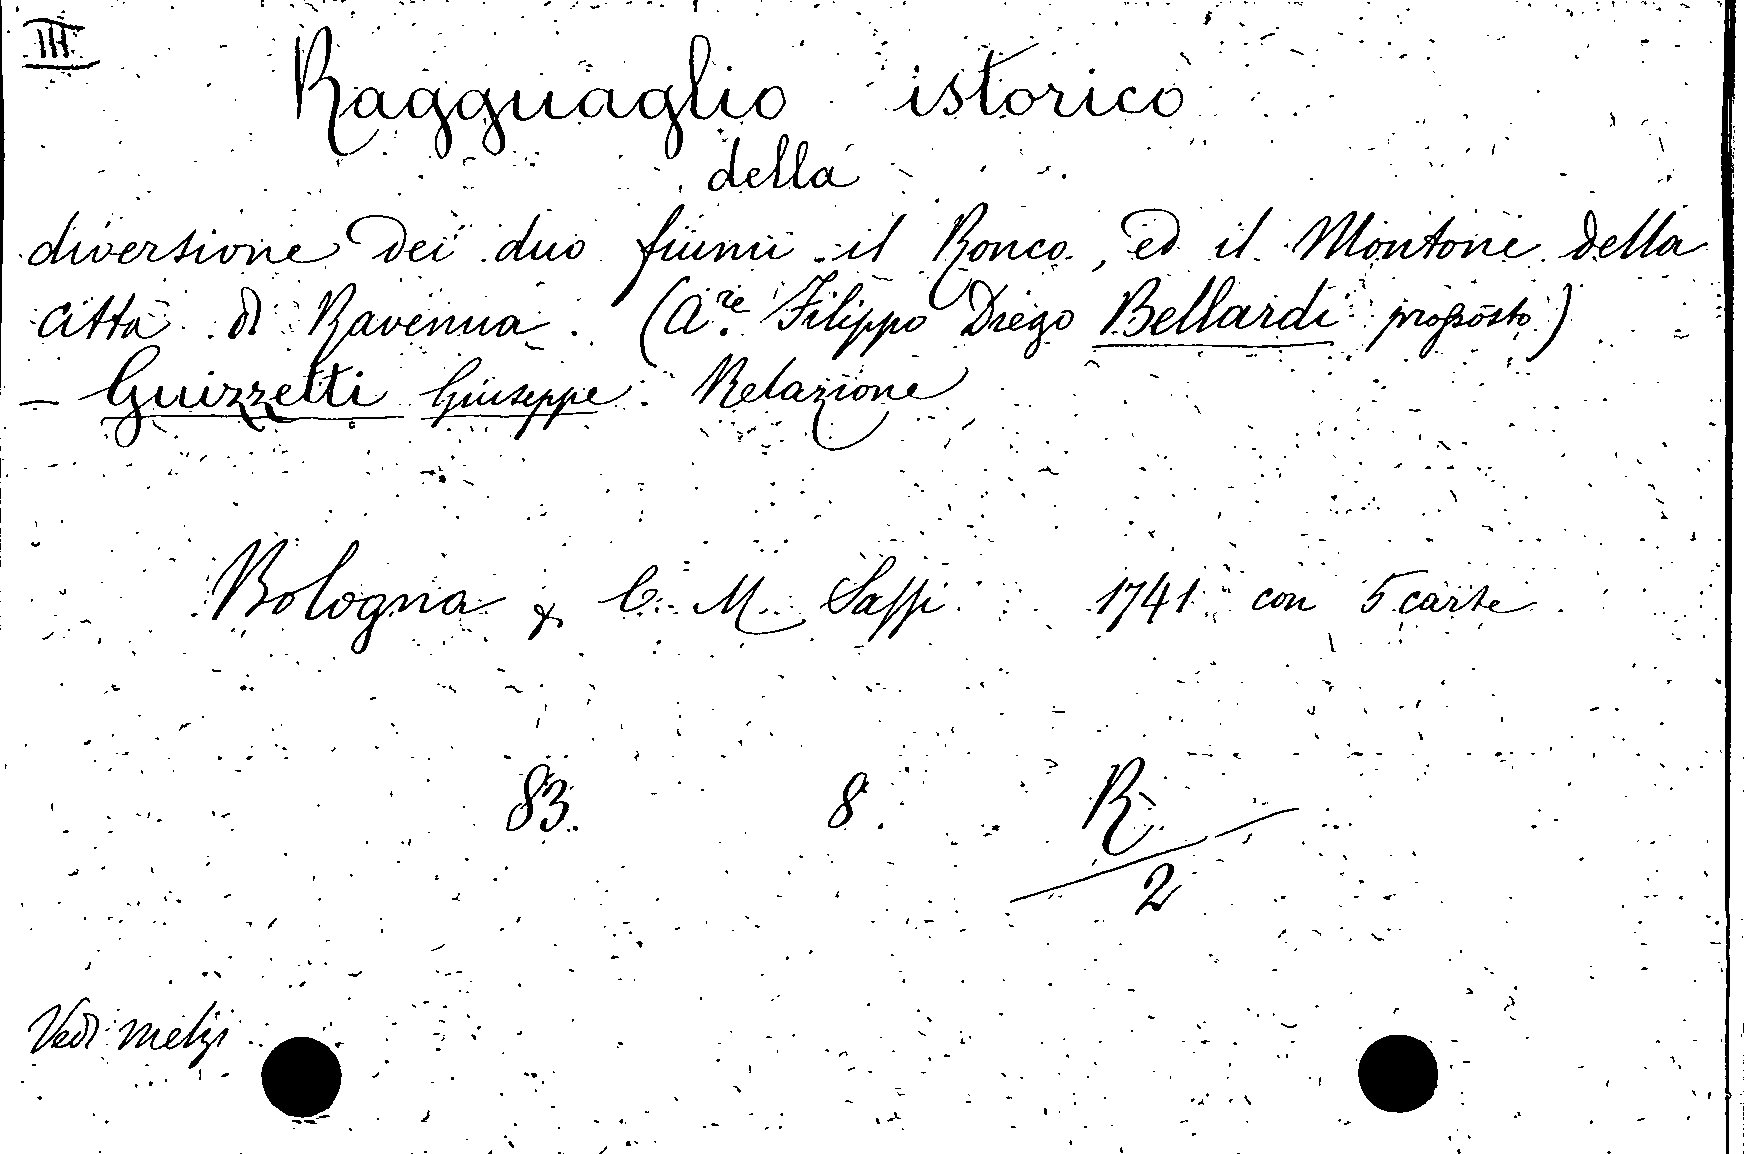 III
Ragguaglio istorico
della
diversione dei duo fiumi il Ronco, ed il Montone della
città di Ravenna. (A.re Filippo Diego Bellardi proposto)
– Guizzetti Giuseppe. Relazione
Bologna C. M. Sassi 1741 con 5 carte
83. 8. R
2
Vedi Melzi